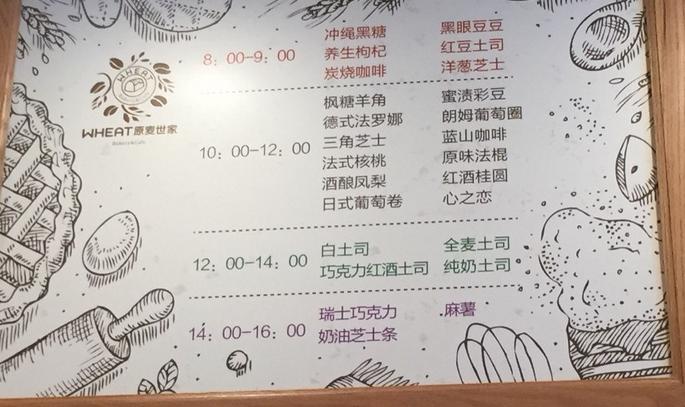 WHEAT
WHEAT原麦世家
Bakery&Cafe
8：00-9：00
冲绳黑糖 黑眼豆豆
养生枸杞 红豆土司
炭烧咖啡 洋葱芝士
10：00-12：00
枫糖羊角 蜜渍彩豆
德式法罗娜 朗姆葡萄圈
三角芝士 蓝山咖啡
法式核桃 原味法棍
酒酿凤梨 红酒桂圆
日式葡萄卷 心之恋
12：00-14：00
白土司 全麦土司
巧克力红酒土司 纯奶土司
14：00-16：00
瑞士巧克力 麻薯
奶油芝士条